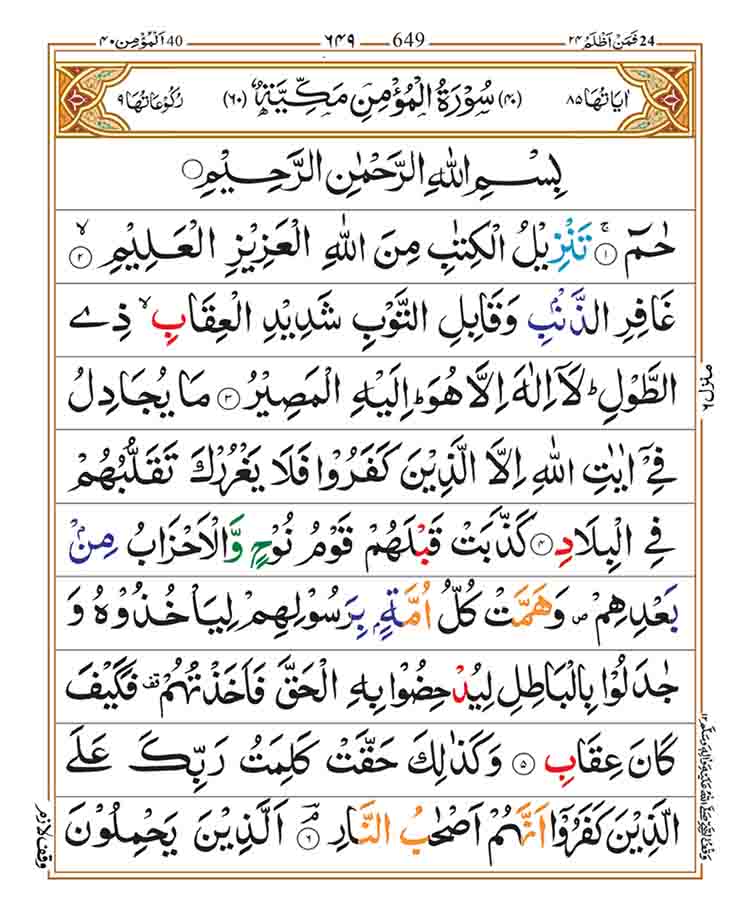 فَمَنْ اَظْلَمُ ٢٤ 24 649 ٦٤٩ اَلْمُؤْمِن ٤٠ 40
اٰيَاتُهَا ٨٥ (٤٠) سُوْرَةُ الْمُؤْمِنِ مَكِّيَّةٌ (٦٠) رُكُوْعَاتُهَا ٩
بِسْمِ اللّٰهِ الرَّحْمٰنِ الرَّحِيْمِ
حٰمٓ ۚ ١ تَنْزِيْلُ الْكِتٰبِ مِنَ اللّٰهِ الْعَزِيْزِ الْعَلِيْمِ ۙ ٢
غَافِرِ الذَّنْۢبِ وَقَابِلِ التَّوْبِ شَدِيْدِ الْعِقَابِ ۙ ذِى
الطَّوْلِ ؕ لَاۤ اِلٰهَ اِلَّا هُوَ ؕ اِلَيْهِ الْمَصِيْرُ ٣ مَا يُجَادِلُ
فِىْۤ اٰيٰتِ اللّٰهِ اِلَّا الَّذِيْنَ كَفَرُوْا فَلَا يَغْرُرْكَ تَقَلُّبُهُمْ
فِى الْبِلَادِ ٤ كَذَّبَتْ قَبْلَهُمْ قَوْمُ نُوْحٍ وَّالْاَحْزَابُ مِنْۢ
بَعْدِهِمْ ۪ وَهَمَّتْ كُلُّ اُمَّةٍۭ بِرَسُوْلِهِمْ لِيَاْخُذُوْهُ وَ
جٰدَلُوْا بِالْبَاطِلِ لِيُدْحِضُوْا بِهِ الْحَقَّ فَاَخَذْتُهُمْ قف فَكَيْفَ
كَانَ عِقَابِ ٥ وَكَذٰلِكَ حَقَّتْ كَلِمَتُ رَبِّكَ عَلَى
الَّذِيْنَ كَفَرُوْۤا اَنَّهُمْ اَصْحٰبُ النَّارِ ۘؔ ٦ اَلَّذِيْنَ يَحْمِلُوْنَ
منزل ٦
وقف النبي صلى الله عليه واله وسلم ١٢
وقف لازم